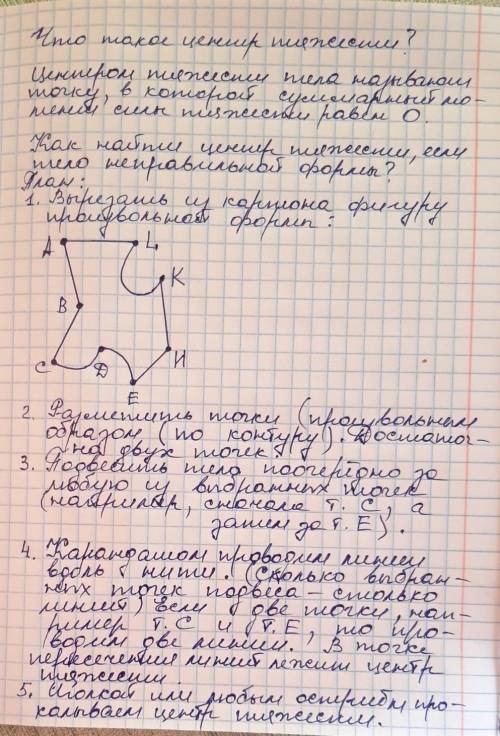 Что такое центр тяжести?
Центром тяжести тела называют
точку, в которой суммарный мо-
мент силы тяжести равен 0.
Как найти центр тяжести, если
тело неправильной формы?
План:
1. Вырезать из картона фигуру
произвольной формы:
A L
K
B
C D И
E
2. Разметить точки (произвольным
образом (по контуру). Достаточ-
на двух точек.
3. Подвесить тело поочерёдно за
любую из выбранных точек
(например, сначала т. C, а
затем за т. E).
4. Карандашом проводим линии
вдоль нити. (Сколько выбран-
ных точек подвеса - столько
линий) Если две точки, нап-
ример т. C и т. E, то про-
водим две линии. В точке
пересечения линий лежит центр
тяжести.
5. Иголкой или любым остриём про-
калываем центр тяжести.